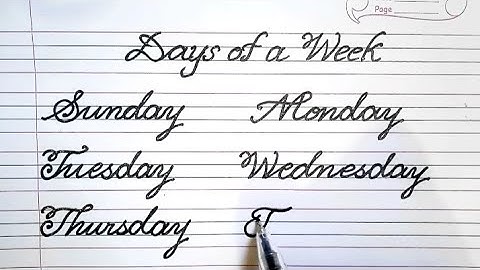 Page
Days of a Week
Sunday Monday
Tuesday Wednesday
Thursday